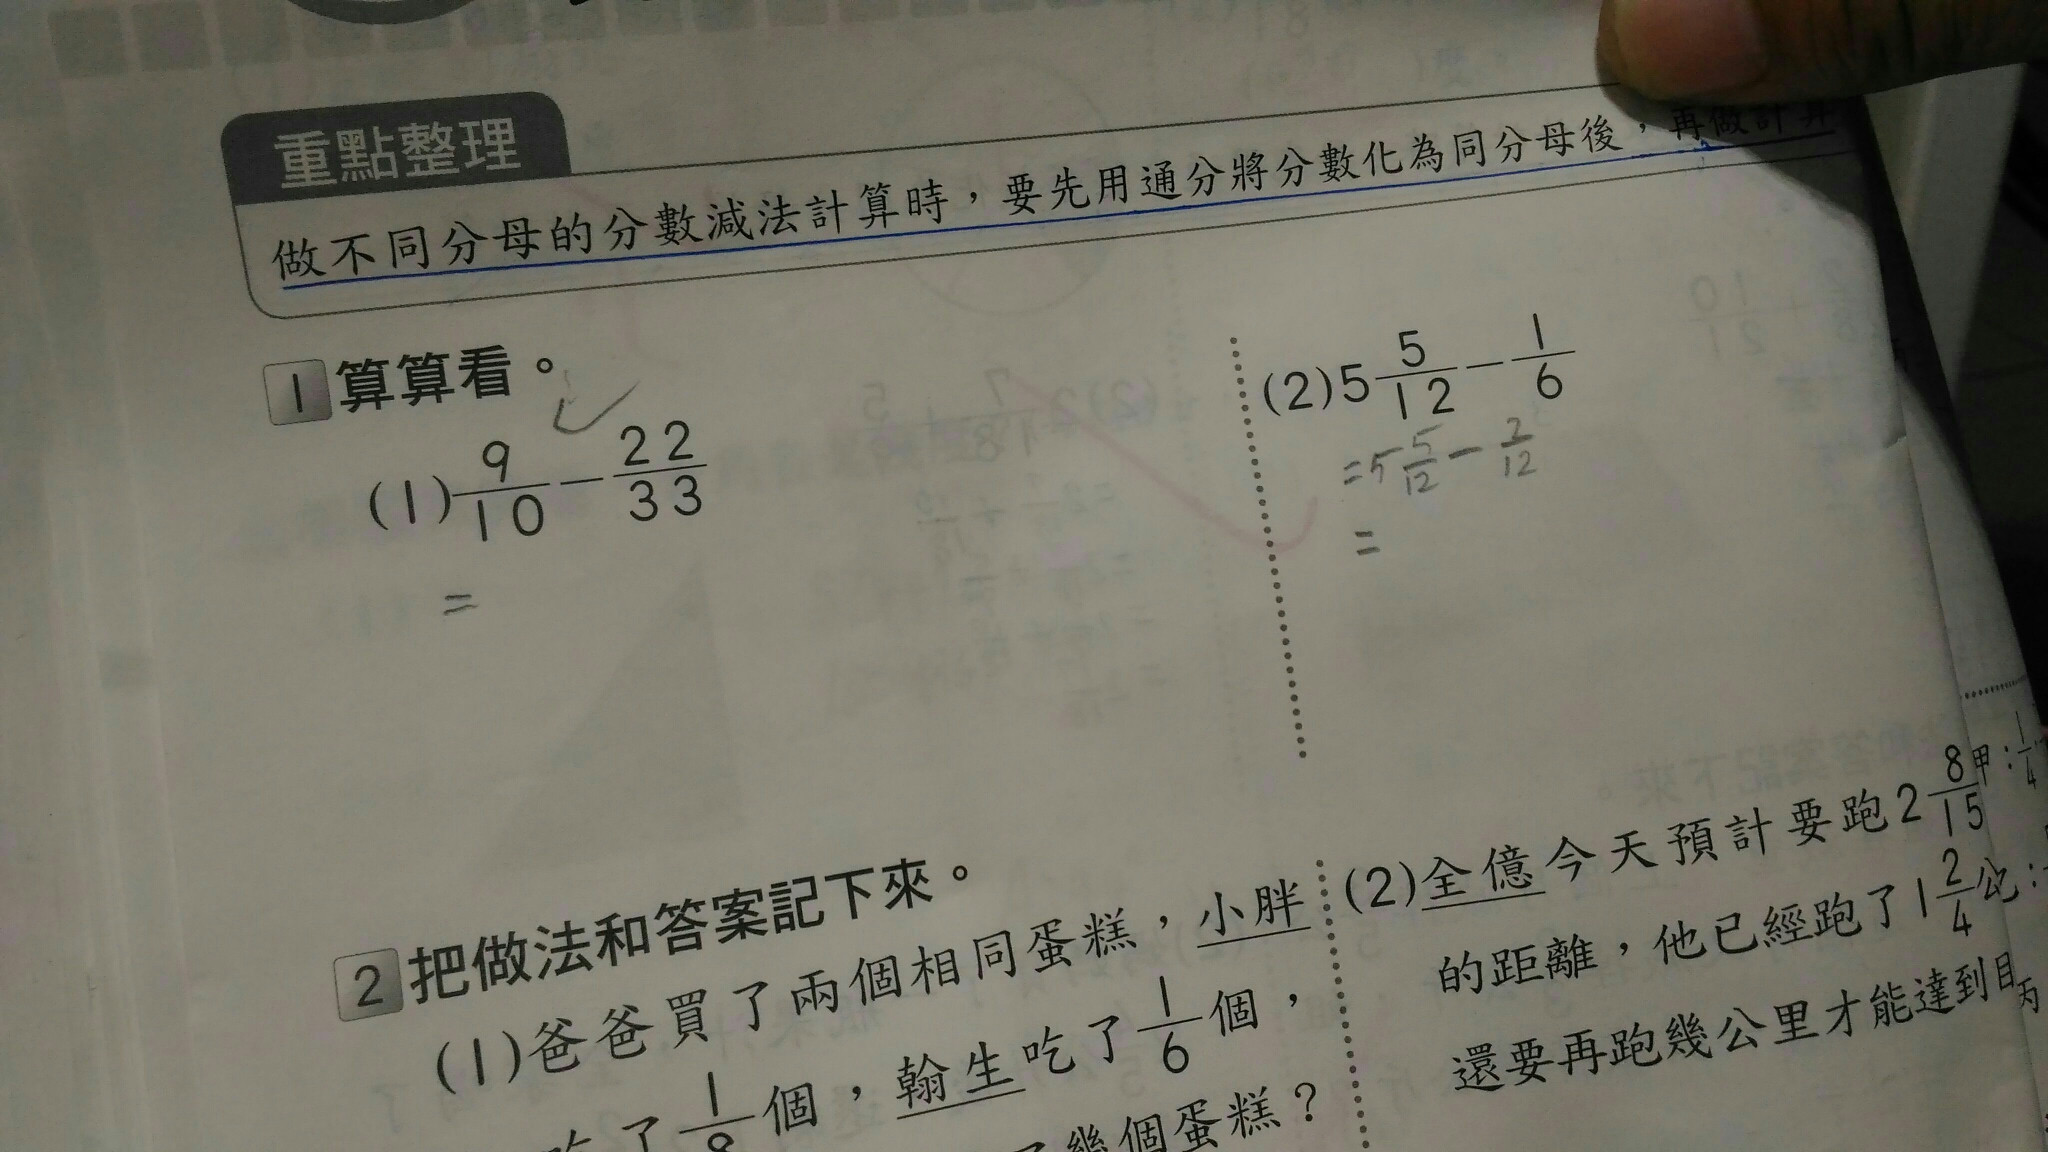 重點整理
做不同分母的分數減法計算時，要先用通分將分數化為同分母後，再做計算
1 算算看。
(1) 9/10 − 22/33
=
(2) 5 5/12 − 1/6
= 5 5/12 − 2/12
=
2 把做法和答案記下來。
(1) 爸爸買了兩個相同蛋糕，小胖
吃了 1/8 個，翰生吃了 1/6 個，
幾個蛋糕？
(2) 全億今天預計要跑 2 8/15
的距離，他已經跑了 1 2/4 公
還要再跑幾公里才能達到目
甲：1/4
丙